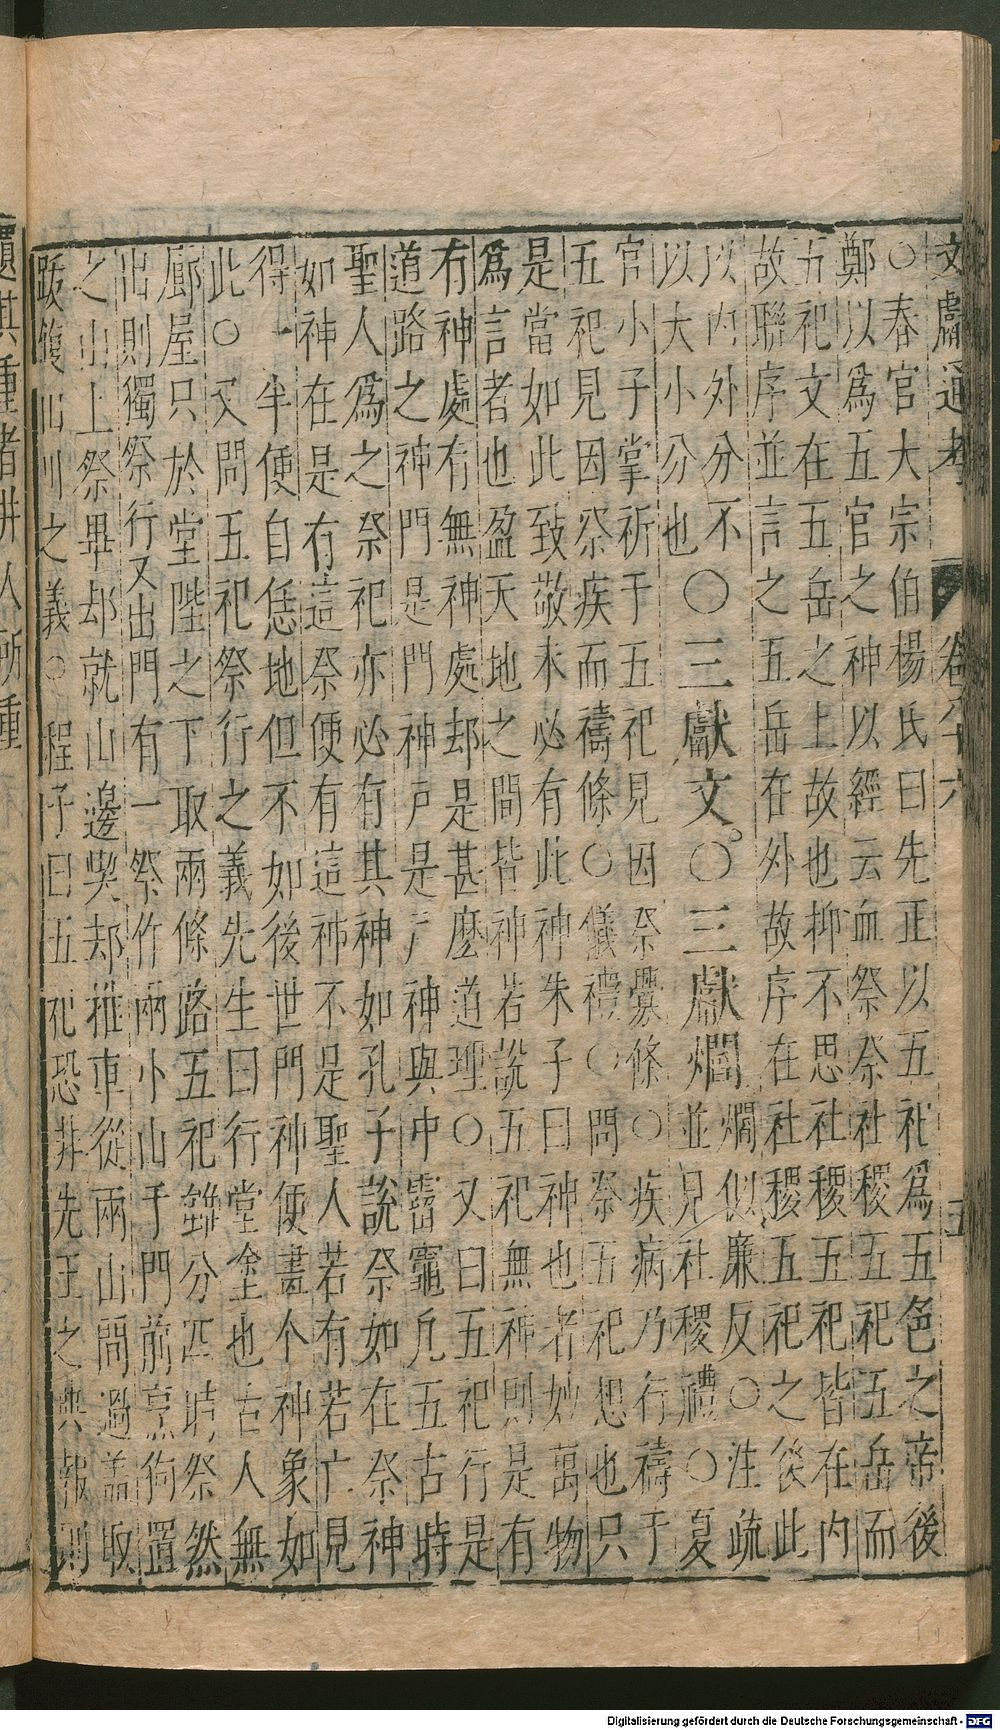 文獻通考 卷八十六 五
○春官大宗伯楊氏曰先正以五祀爲五色之帝後
鄭以爲五官之神以經云血祭祭社稷五祀五岳而
五祀文在五岳之上故也抑不思社稷五祀皆在内
故聯序並言之五岳在外故序在社稷五祀之後此
以内外分不
以大小分也○三獻文。○三獻爓爓似廉反○注疏
並見社稷禮○夏
官小子掌祈于五祀見因祭釁條○疾病乃行禱于
五祀見因祭疾而禱條○儀禮○問祭五祀想也只
是當如此致敬未必有此神朱子曰神也者妙萬物
爲言者也盈天地之間皆神若說五祀無神則是有
有神處有無神處却是甚麽道理○又曰五祀行是
道路之神門是門神戸是戸神與中霤竈凡五古時
聖人爲之祭祀亦必有其神如孔子說祭如在祭神
如神在是有這祭便有這神不是聖人若有若亡見
得一半便自恁地但不如後世門神便畫个神象如
此○又問五祀祭行之義先生曰行堂塗也古人無
廊屋只於堂陛之下取兩條路五祀雖分四時祭然
出則獨祭行又出門有一祭作兩小山于門前烹狗置
之山上祭畢却就山邊喫却推車從兩山間過蓋取
跋履山川之義○程子曰五祀恐非先王之典報則
其重者井人所重
Digitalisierung gefördert durch die Deutsche Forschungsgemeinschaft - DFG